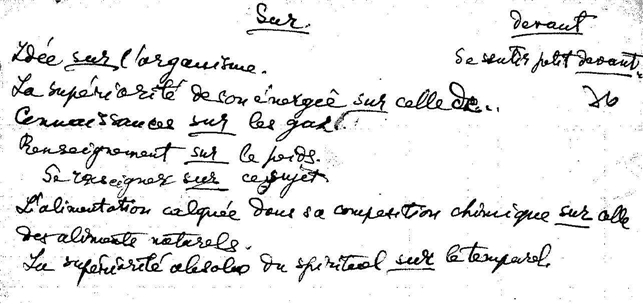 Sur. devant
Idée sur l'organisme. Se sentir petit devant.
La supériorité de son énergie sur celle de...
Connaissances sur les gaz.
Renseignement sur le poids.
Se renseigner sur ce sujet.
L'alimentation calquée dans sa composition chimique sur celle
des aliments naturels.
La supériorité absolue du spirituel sur le temporel.